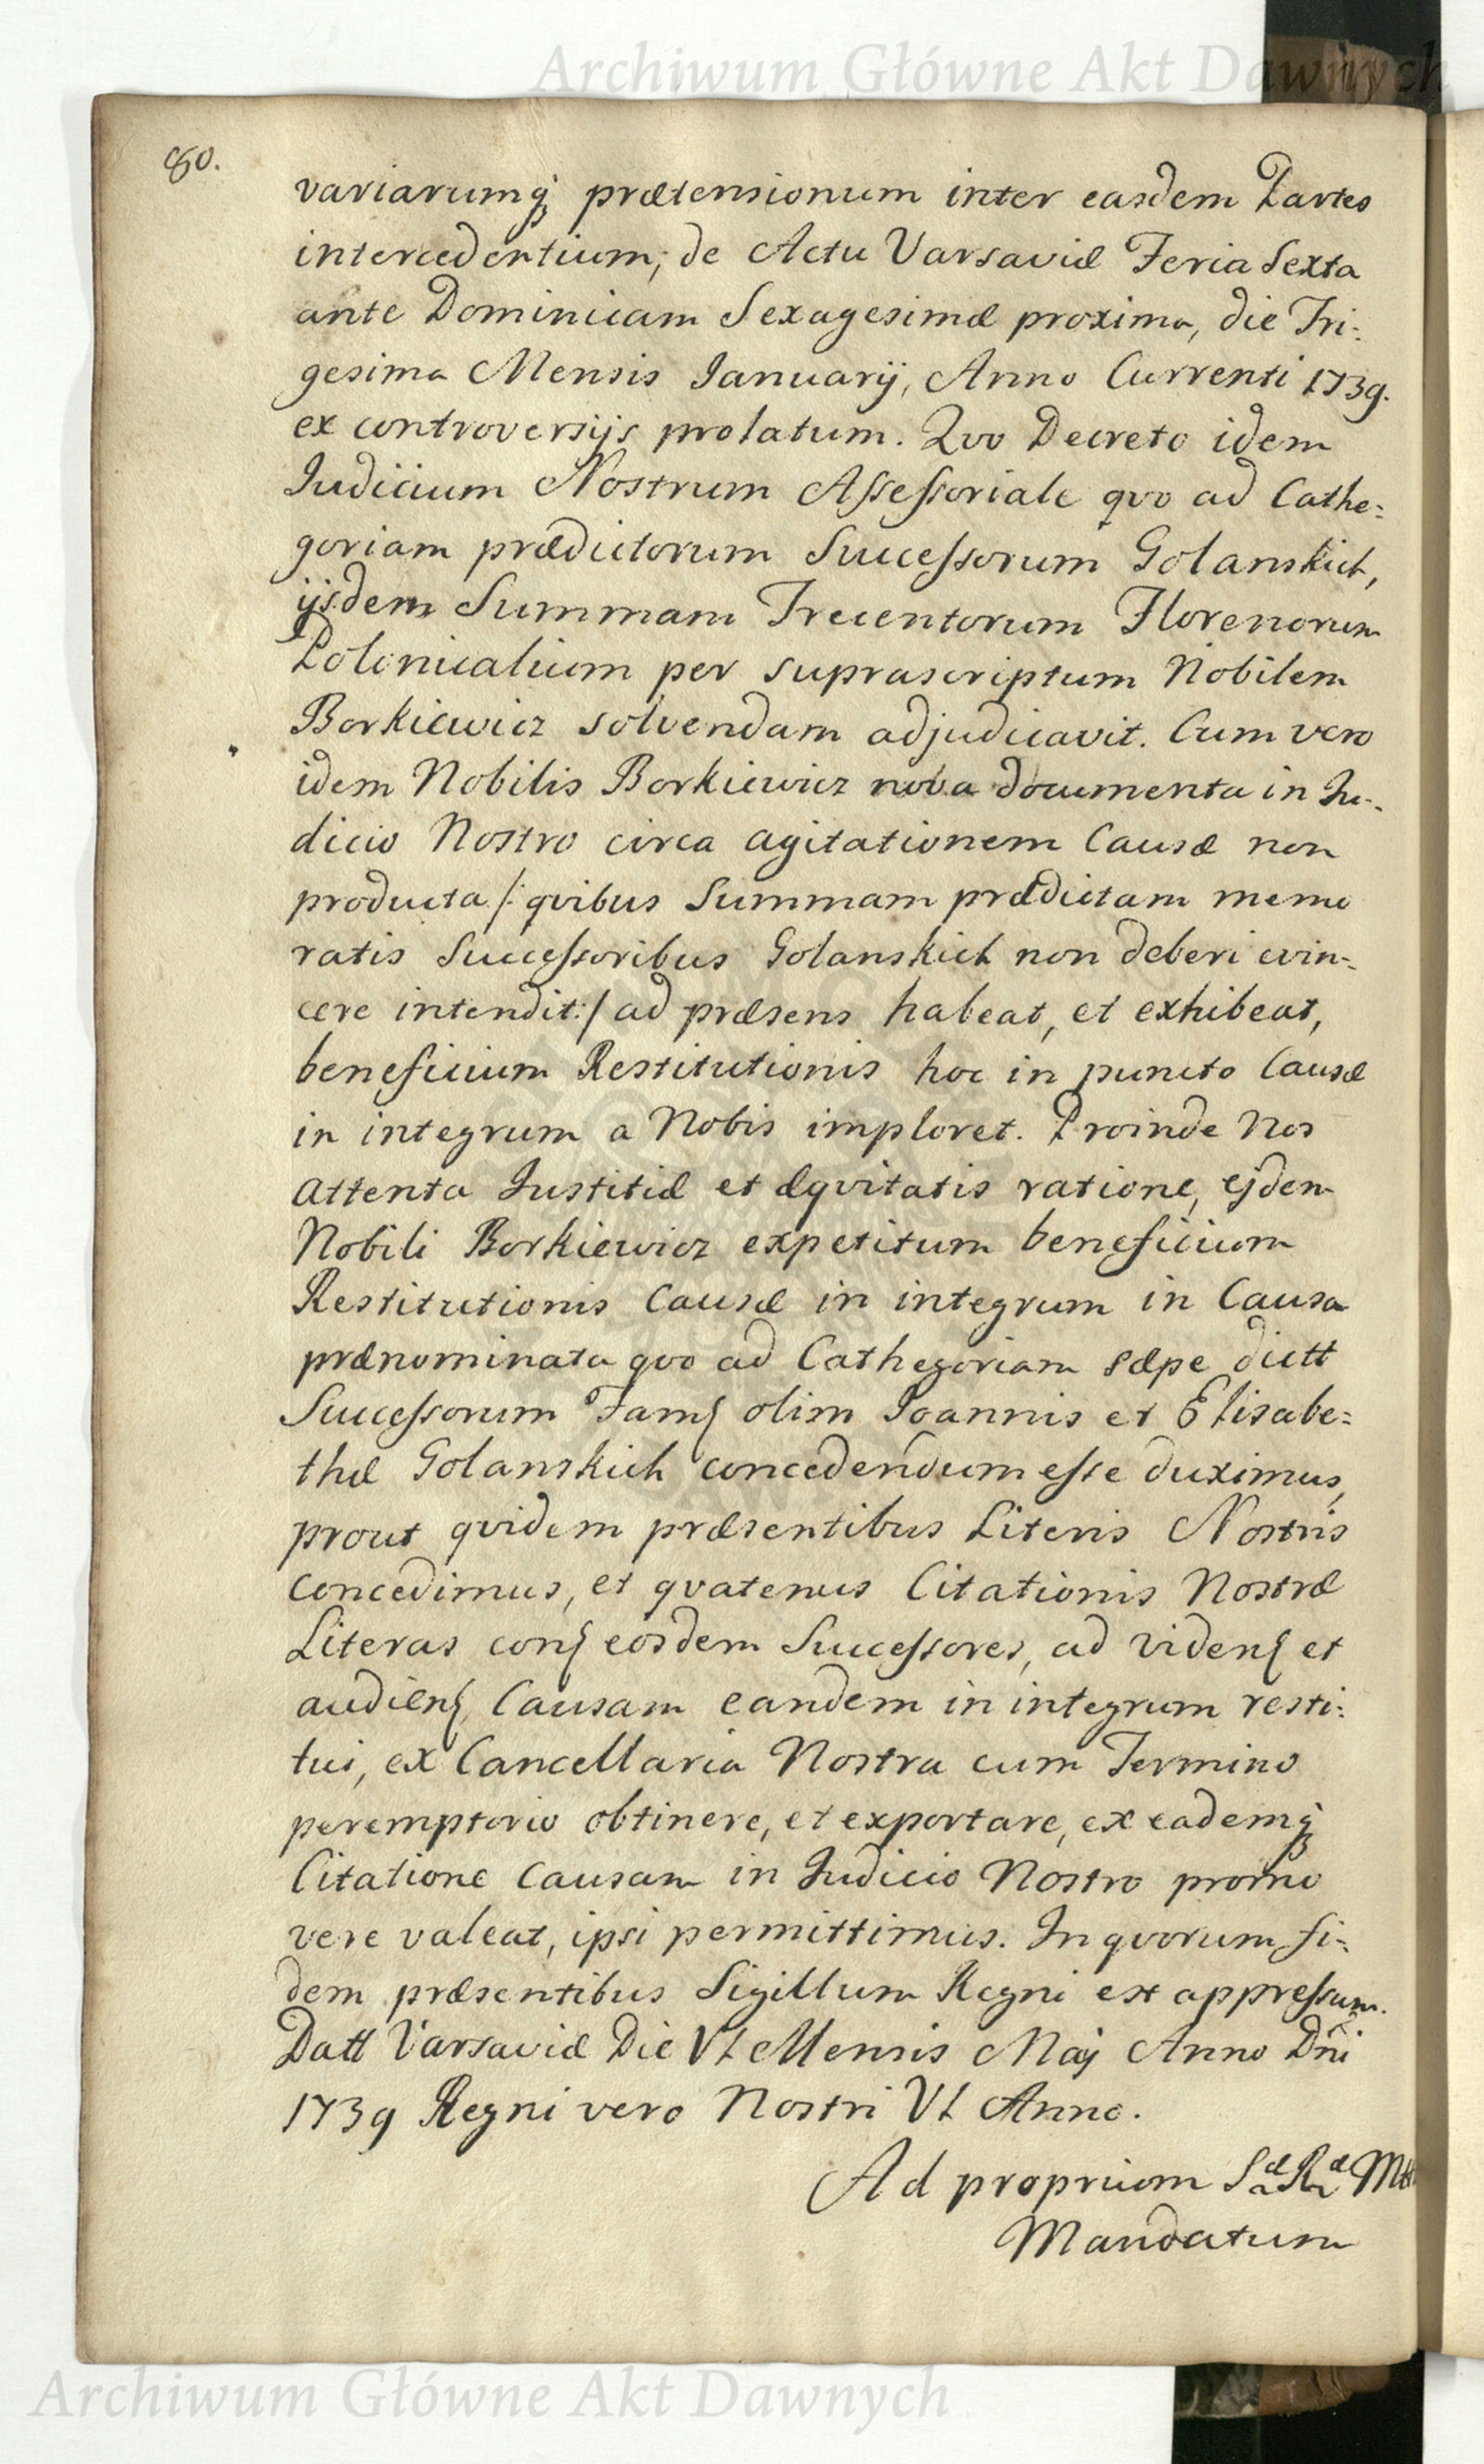 Archiwum Główne Akt Dawnych
80.
variarumq̨ prætensionum inter easdem Partes
intercedentium, de Actu Varsaviæ Feria Sexta
ante Dominicam Sexagesimæ proxima, die Tri:
gesima Mensis Januarij, Anno Currenti 1739.
ex controversijs prolatum. Qvo Decreto idem
Judicium Nostrum Assessoriale qvo ad Cathe:
goriam prædictorum Successorum Golanskich,
ijsdem Summam Trecentorum Florenorum
Polonicalium per suprascriptum Nobilem
Borkiewicz solvendam adjudicavit. Cum vero
idem Nobilis Borkiewicz nova documenta in Ju:
dicio Nostro circa agitationem Causæ non
producta /: qvibus Summam prædictam memo
ratis Successoribus Golanskich non deberi evin:
cere intendit :/ ad præsens habeat, et exhibeat,
beneficium Restitutionis hoc in puncto Causæ
in integrum a Nobis imploret. Proinde Nos
attenta Justitiæ et æqvitatis ratione, ejdem
Nobili Borkiewicz expetitum beneficium
Restitutionis Causæ in integrum in Causa
prænominata qvo ad Cathegoriam sæpe dictt
Successorum Fam olim Joannis et Elisabe:
thæ Golanskich concedendum esse duximus,
prout qvidem præsentibus Literis Nostris
concedimus, et qvatenus Citationis Nostræ
Literas con eosdem Successores, ad viden et
audien Causam eandem in integrum resti:
tui, ex Cancellaria Nostra cum Termino
peremptorio obtinere, et exportare, ex eademq̨
Citatione Causam in Judicio Nostro promo
vere valeat, ipsi permittimus. In qvorum fi:
dem præsentibus Sigillum Regni est appressum.
Datt Varsaviæ Die VI Mensis Maj Anno Dni
1739 Regni vero Nostri VI Anno.
Ad proprium Sæ Ræ Mttis
Mandatum
Archiwum Główne Akt Dawnych